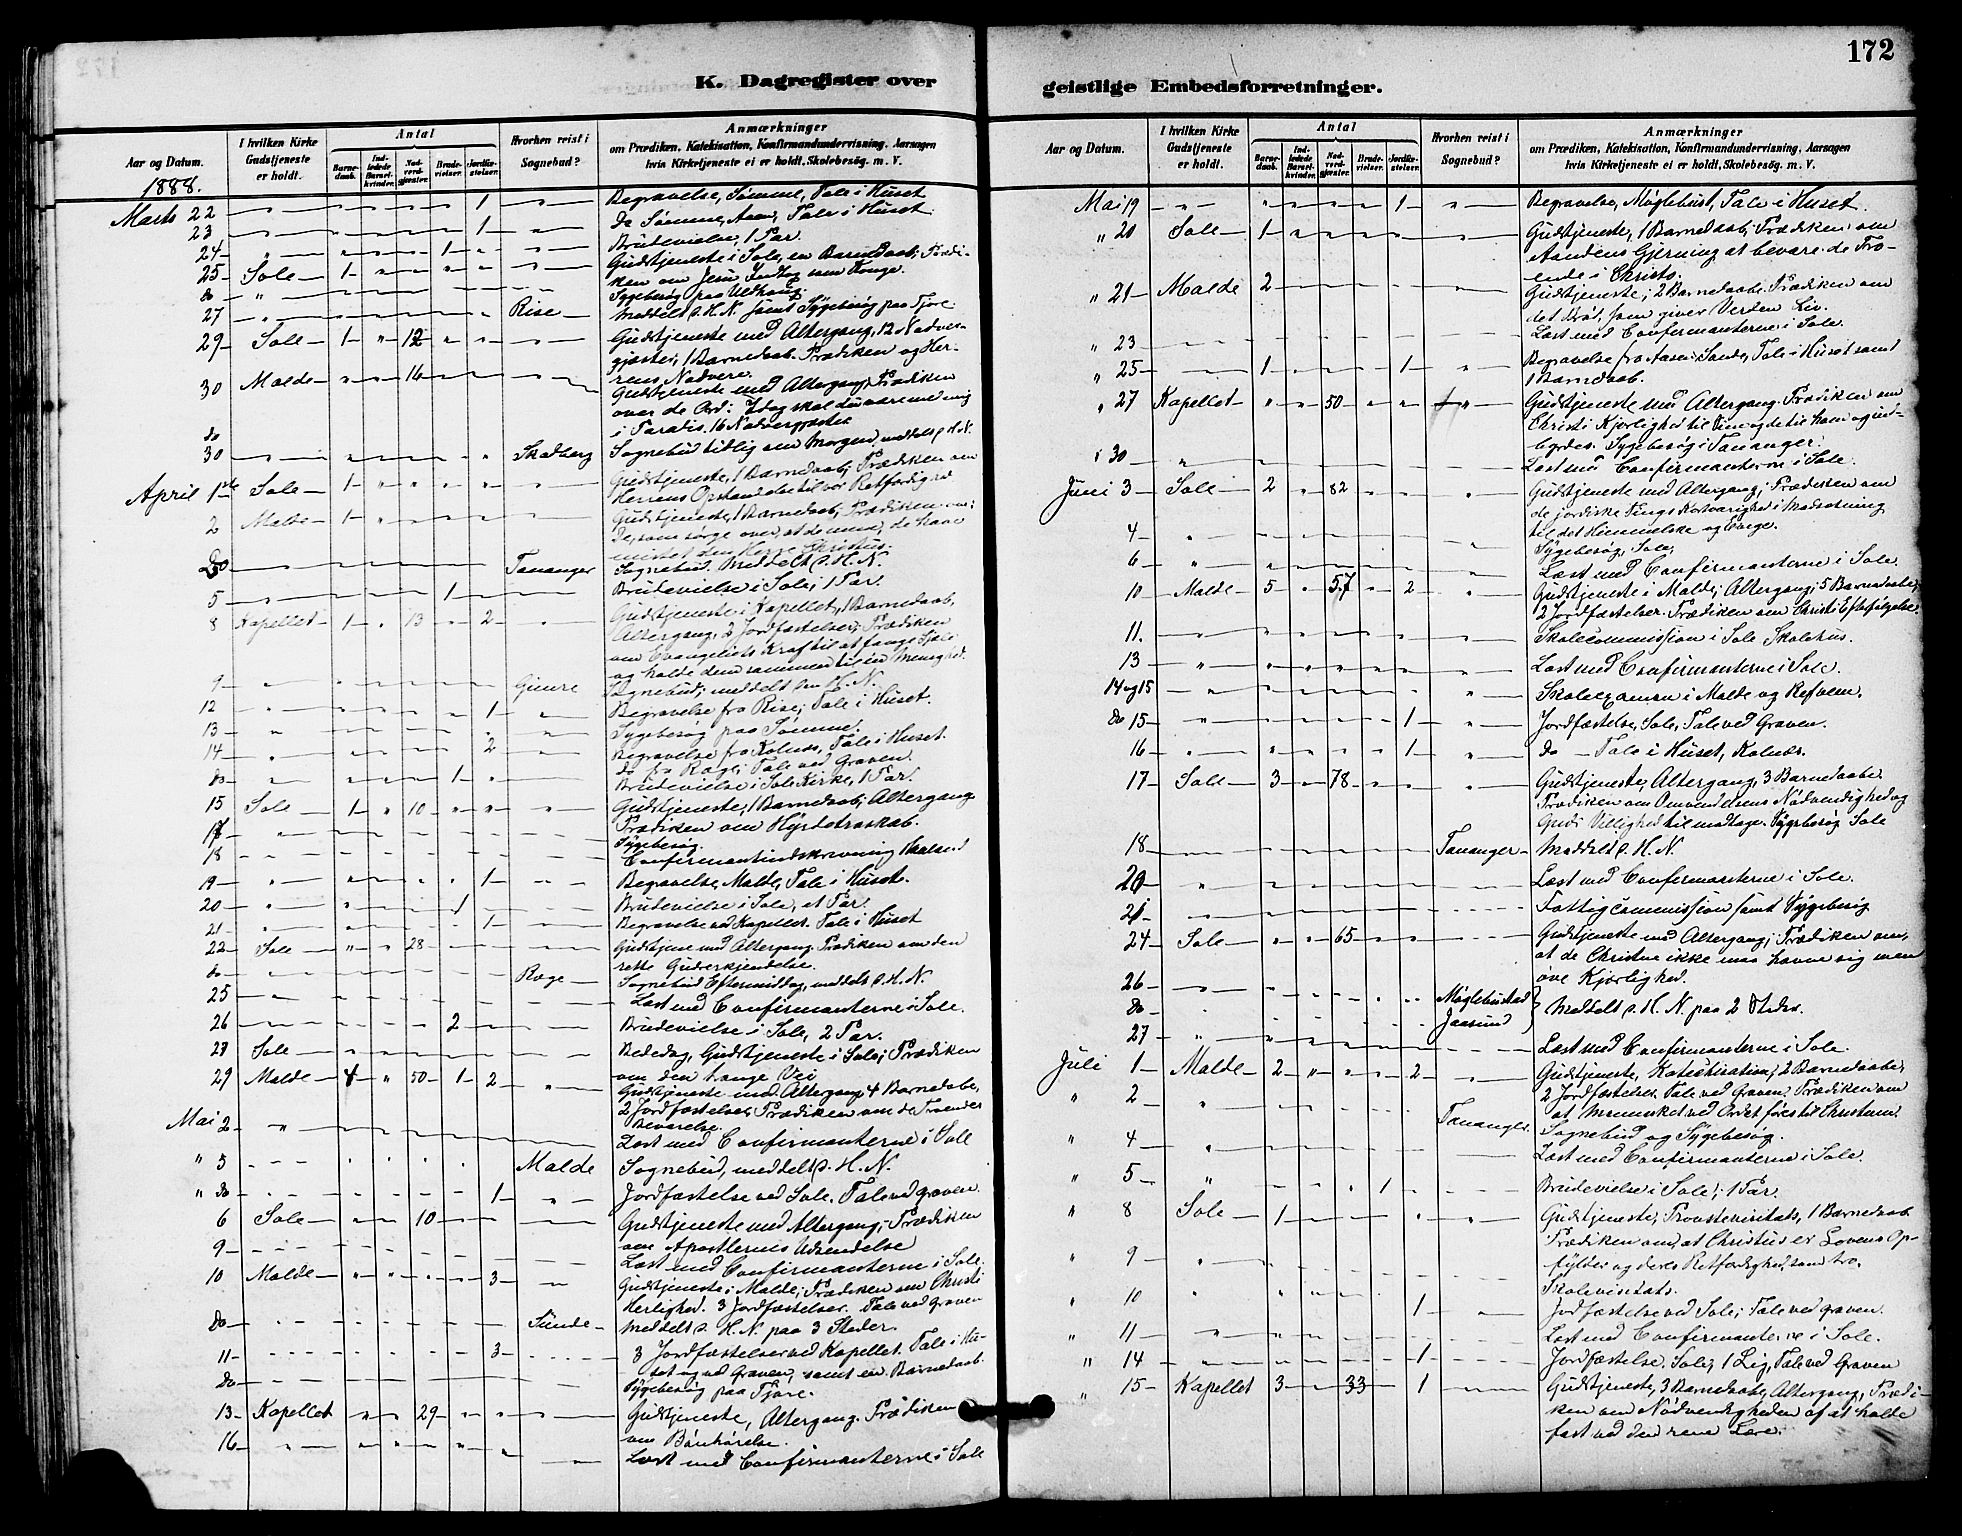 172
K. Dagregister over
geistlige Embedsforretninger.
Aar og Datum.
I hvilken Kirke Gudstjeneste er holdt.
Antal
Barnedaab.
Indledede Barselkvinder.
Nadverdgjester.
Brudevielser.
Jordfæstelser.
Hvorhen reist i Sognebud?
Anmærkninger
om Prædiken, Katekisation, Konfirmandundervisning, Aarsagen
hvis Kirketjeneste ei er holdt, Skolebesög. m. V.
1888.
Marts 22 1 Begravelse, Sömme, Tale i Huset
23 1 Do Sömme, Tale i Huset
24 1 Brudevielse, 1 Par.
25 Sole 1 Gudstjeneste i Sole, en Barnedaab; Prædi-
ken om Jesu Indtog som Konge.
do Sygebesög paa
27 Rise Meddelt s. H. N. samt Sygebesög paa Tjore
29 Sole 1 12 Gudstjeneste med Altergang, 12 Nadver-
gjæster, 1 Barnedaab. Prædiken og Her-
rens Nadvere.
30 Malde 16 Gudstjeneste med Altergang, Prædiken
over de Ord: Idag skal du være med mig
i Paradis. 16 Nadvergjæster
do 30 Skadberg Sognebud tidlig om Morgen, meddelt s. H. N.
April 1ste Sole 1 Gudstjeneste, 1 Barnedaab; Prædiken om
Herrens Opstandelse til vor Retfærdighed
2 Malde 1 Gudstjeneste, 1 Barnedaab; Prædiken om:
De, som sörge over, at de mene, de have
mistet den Herre Christus.
Do Tananger Sognebud. Meddelt s. H. N.
5 1 Brudevielse i Sole, 1 Par.
8 Kapellet 1 13 2 Gudstjeneste i Kapellet, 1 Barnedaab,
Altergang, 2 Jordfæstelser; Prædiken
om Evangeliets Kraft til at fange Sjæle
og holde dem sammen til en Menighed.
9 Gimre Sognebud; meddelt s. H. N.
12 1 Begravelse fra Rise; Tale i Huset.
13 Sygebesög paa Sömme.
14 2 Begravelse fra Kolnes, Tale i Huset.
do fra Rægi; Tale ved Graven.
do 1 Brudevielse i Sole Kirke, 1 Par.
15 Sole 1 10 Gudstjeneste, 1 Barnedaab; Altergang
Prædiken om Hyrdetroskab.
17 Sygebesög.
18 Confirmantindskrivning
19 1 Begravelse, Malde, Tale i Huset.
20 1 Brudevielse i Sole, et Par.
21 1 Begravelse ved Kapellet. Tale i Huset
22 Sole 28 Gudstjene med Altergang. Prædiken om den
rette Guderkjendelse.
do Ræge Sognebud Eftermiddag, meddelt s. H. N
25 Læst med Confirmanterne i Sole.
26 2 Brudevielse i Sole, 2 Par.
27 Sole Bededag, Gudstjeneste i Sole; Prædiken
om den trange Vei
29 Malde 4 50 1 2 Gudstjeneste med Altergang 4 Barnedaabe,
2 Jordfæstelser, Prædiken om de Troendes
Bevarelse.
Mai 2 Læst med Confirmanterne i Sole
" 5 Malde Sognebud, meddelt s. H. N.
" do 1 Jordfæstelse ved Sole. Tale ved Graven.
6 Sole 10 Gudstjeneste med Altergang, Prædiken
om Apostlernes Udsendelse
9 Læst med Confirmanterne i Sole.
10 Malde 3 Gudstjeneste i Malde; Prædiken om Christi
Herlighed. 3 Jordfæstelser. Tale ved Graven
Do Sunde Meddelt s. H. N. paa 3 Steder.
11 3 3 Jordfæstelser ved Kapellet. Tale i Hu-
set og ved Graven, samt en Barnedaab.
Do Sygebesög paa Tjore.
13 Kapellet 29 Gudstjeneste, Altergang. Prædiken
om Bönhörelse.
16 Læst med Confirmanterne i Sole
Aar og Datum.
I hvilken Kirke Gudstjeneste er holdt.
Antal
Barnedaab.
Indledede Barselkvinder.
Nadverdgjester.
Brudevielser.
Jordfæstelser.
Hvorhen reist i Sognebud?
Anmærkninger
om Prædiken, Katekisation, Konfirmandundervisning, Aarsagen
hvis Kirketjeneste ei er holdt, Skolebesög. m. V.
Mai 19 1 Begravelse, Møglebust, Tale i Huset.
" 20 Sole 1 Gudstjeneste, 1 Barnedaab; Prædiken om
Aandens Gjerning at bevare de Tro-
ende i Christo.
" 21 Malde 2 Gudstjeneste; 2 Barnedaabe. Prædiken om
det Bröd, som giver Verden Liv.
" 23 Læst med Confirmanterne i Sole.
" 25 1 1 Begravelse fra Aasen Sande, Tale i Huset samt
1 Barnedaab.
" 27 Kapellet 50 Gudstjeneste med Altergang. Prædiken om
Christi Kjerlighed til Sine og de til ham og ind-
byrdes. Sygebesög i Tananger.
" 30 Læst med Confirmanterne i Sole.
Juni 3 Sole 2 82 Gudstjeneste med Altergang; Prædiken om
de jordiske Tings Kortvarighed i Modsætning
til det Himmelske og Evige.
4 Sygebesög, Sole;
6 Læst med Confirmanterne i Sole.
10 Malde 5 57 2 Gudstjeneste i Malde; Altergang; 5 Barnedaabe;
2 Jordfæstelser. Prædiken om Christi Efterfölgelse.
11. Skolecommission i Sole Skolehus.
13 Læst med Confirmanterne i Sole.
14 og 15 Skoleexamen i Malde og Refheim.
Do 15 1 Jordfæstelse, Sole; Tale ved Graven.
16 1 do Tale i Huset, Kolnæs.
17 Sole 3 78 Gudstjeneste, Altergang, 3 Barnedaabe.
Prædiken om Omvendelsens Nödvendighed og
Guds Villighed til modtage. Sygebesög Sole
18 Tananger Meddelt s. H. N.
20 Læst med Confirmanterne i Sole.
21 Fattigcommission samt Sygebesög
24 Sole 65 Gudstjeneste med Altergang; Prædiken om,
at de Christne ikke maa hævne sig men
öve Kjerlighed.
26 Møglebustad
Do Jaasund } Meddelt s. H. N. paa 2 Steder.
27 Læst med Confirmanterne i Sole.
Juli 1 Malde 2 2 Gudstjeneste, Katechisation; 2 Barnedaabe;
2 Jordfæstelser. Tale ved Graven. Prædiken om
at Mennesket ved Ordet föres til Christum.
" 2 Tananger Sognebud og Sygebesög.
" 4 Læst med Confirmanterne i Sole.
" 5 1 Brudevielse i Sole; 1 Par.
" 8 Sole 1 Gudstjeneste; Provstevisitats, 1 Barnedaab
Prædiken om, at Christus er Lovens Op-
fylder og deres Retfærdighed, som tro.
" 9 Skolevisitats.
" 10 1 Jordfæstelse ved Sole; Tale ved Graven.
" 11 Læst med Confirmanterne i Sole.
" 14 1 Jordfæstelse. Sole; 1 Lig, Tale ved Graven
" 15 Kapellet 3 33 1 Gudstjeneste, 3 Barnedaabe, Altergang, Prædi-
ken om Nödvendigheden af at holde
fast ved den rene Lære.